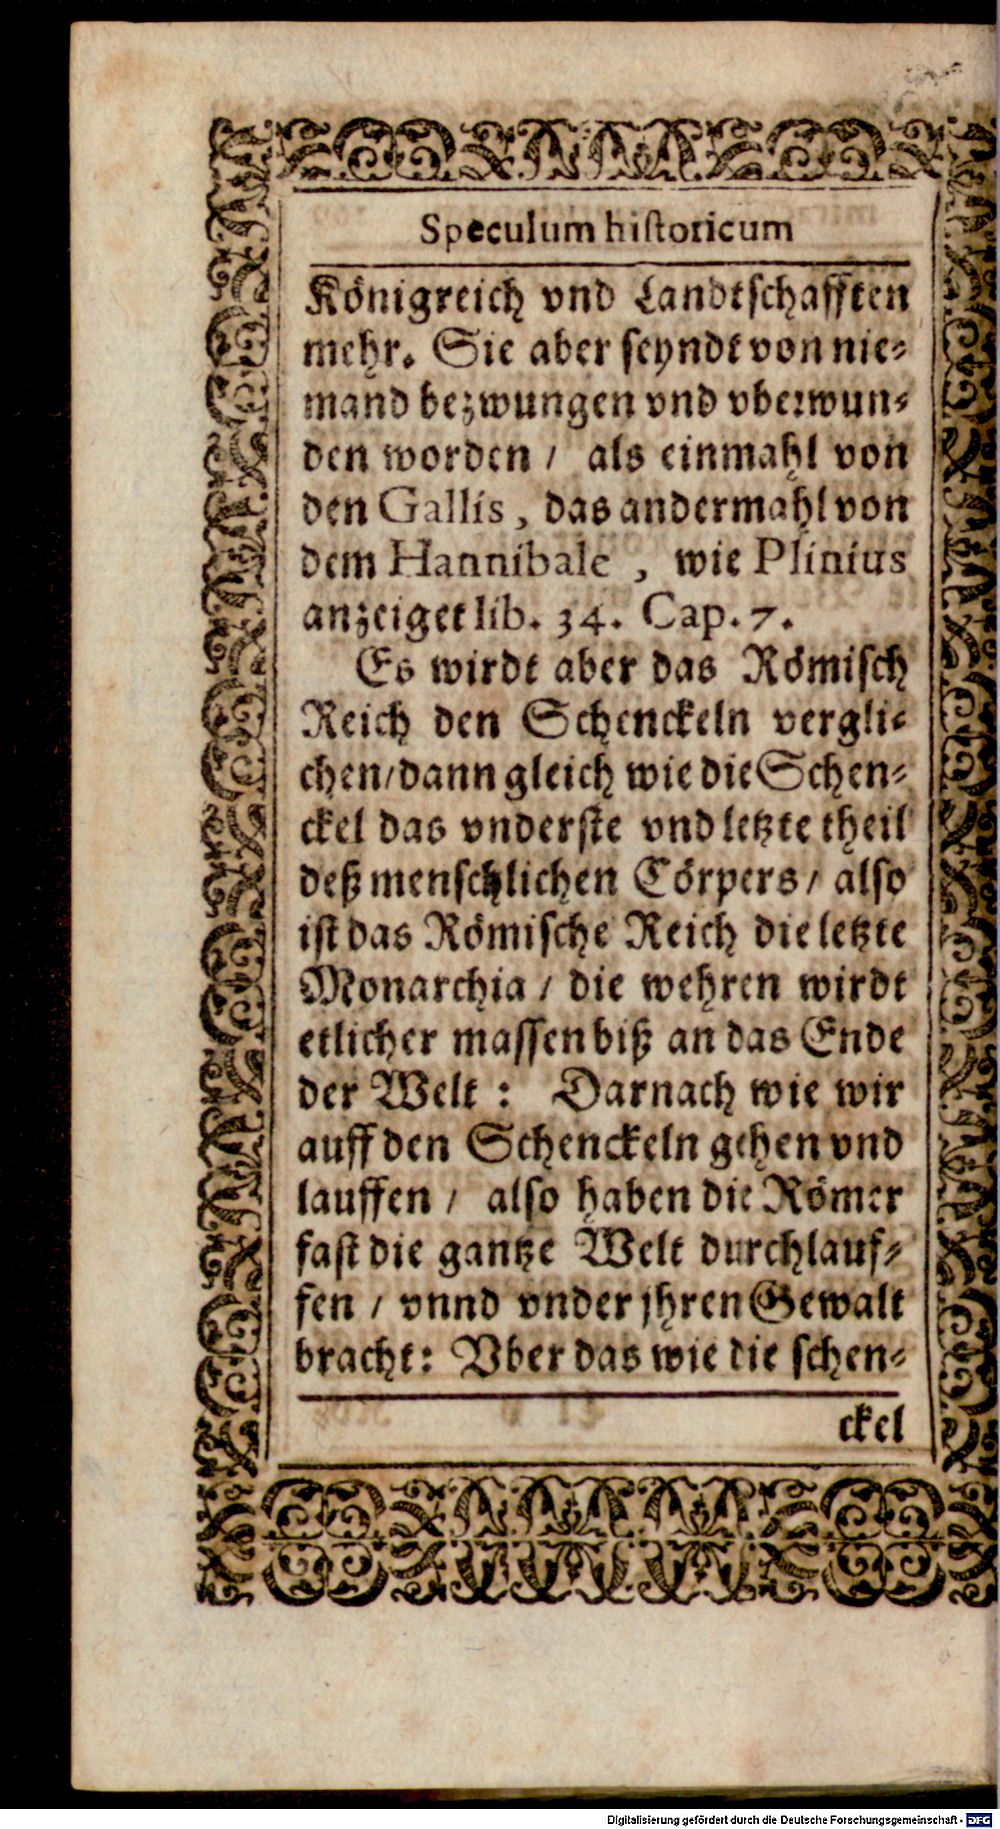 Speculum historicum
Königreich vnd Landtschafften
mehr. Sie aber seyndt von nie-
mand bezwungen vnd vberwun-
den worden / als einmahl von
den Gallis, das andermahl von
dem Hannibale , wie Plinius
anzeiget lib. 34. Cap. 7.
Es wirdt aber das Römisch
Reich den Schenckeln vergli-
chen/dann gleich wie die Schen-
ckel das vnderste vnd letzte theil
deß menschlichen Cörpers / also
ist das Römische Reich die letzte
Monarchia / die wehren wirdt
etlicher massen biß an das Ende
der Welt : Darnach wie wir
auff den Schenckeln gehen vnd
lauffen / also haben die Römer
fast die gantze Welt durchlauf-
fen / vnnd vnder jhren Gewalt
bracht: Vber das wie die schen-
ckel
Digitalisierung gefördert durch die Deutsche Forschungsgemeinschaft - DFG